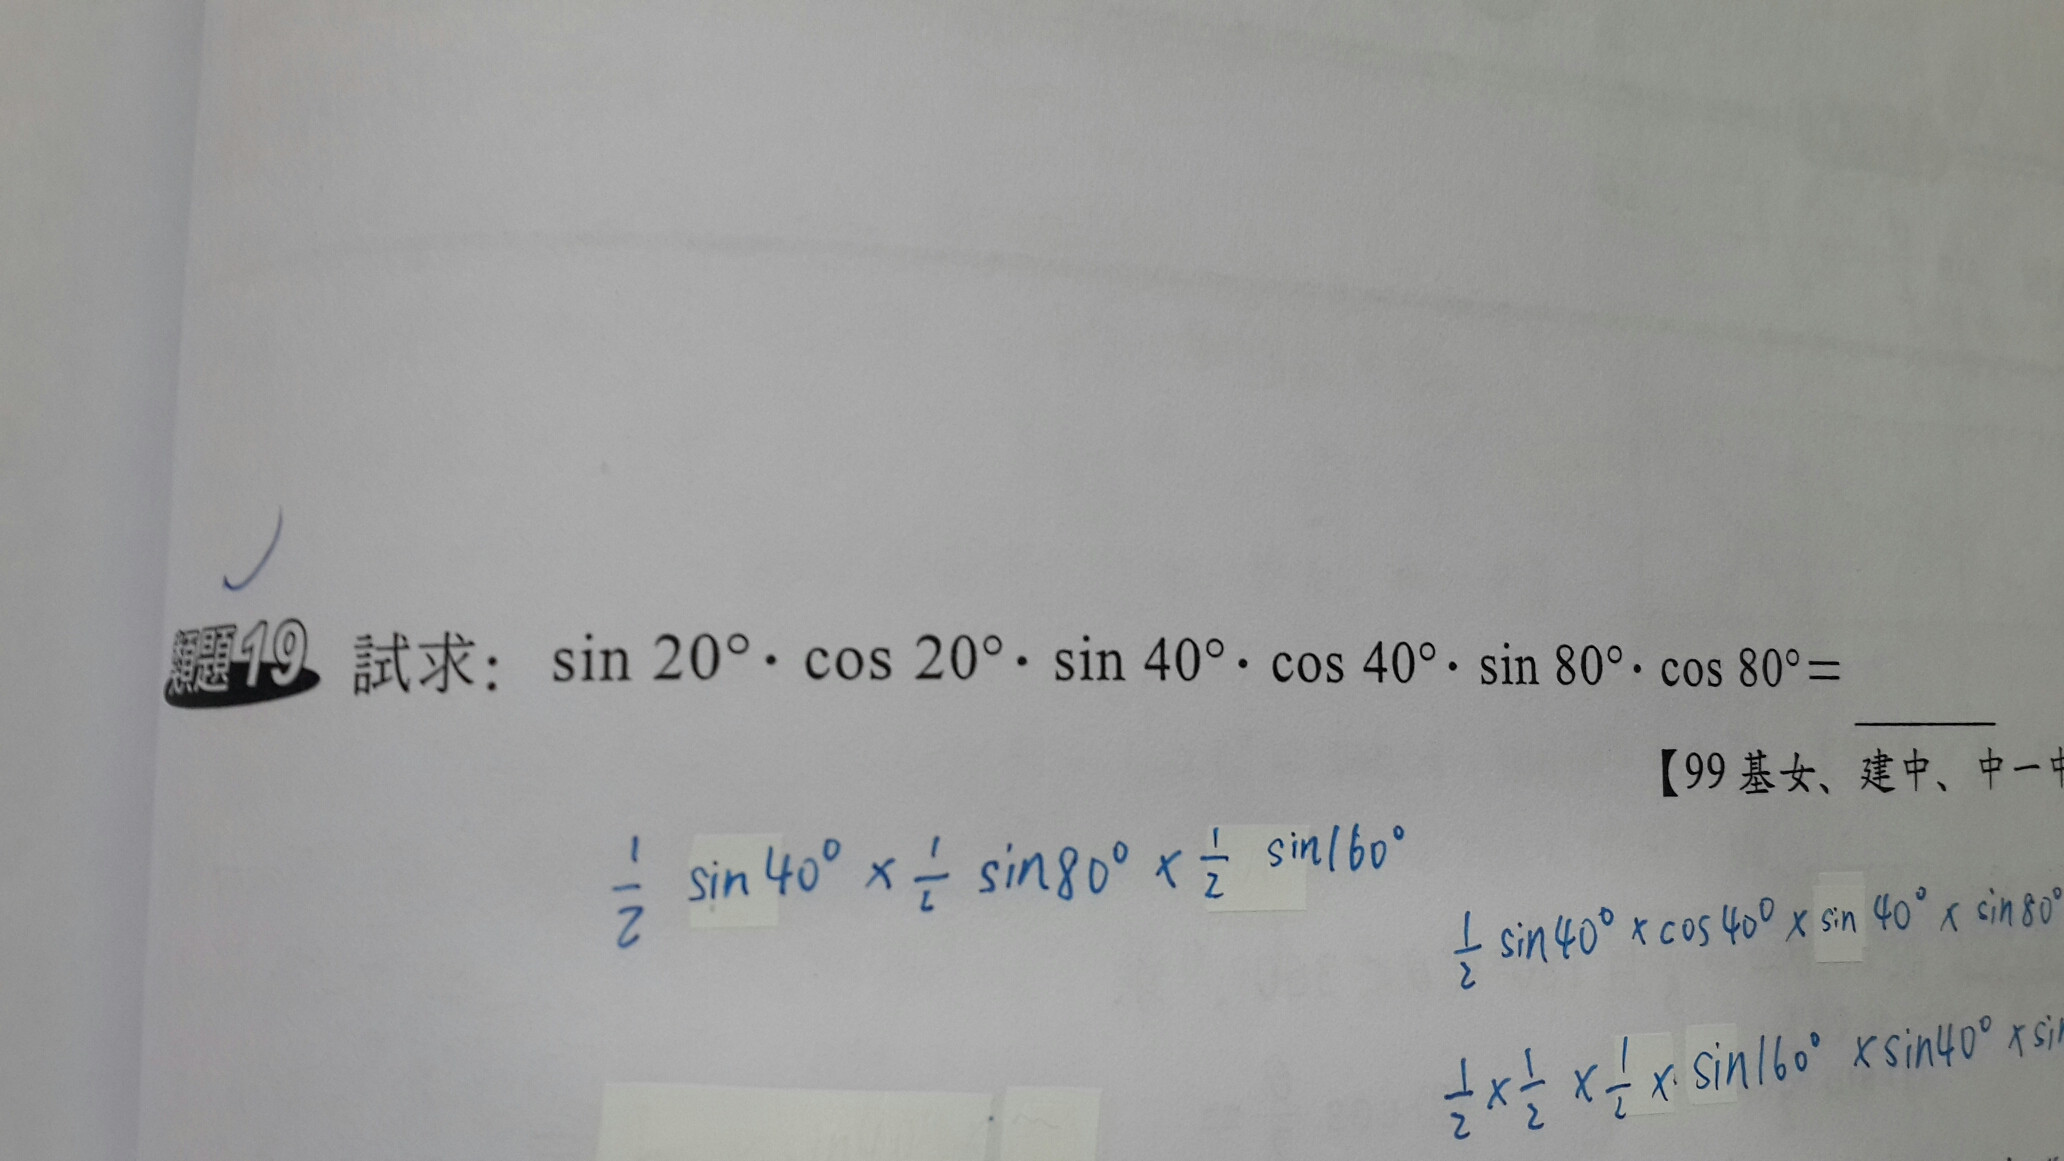 類題19 試求： sin 20°· cos 20°· sin 40°· cos 40°· sin 80°· cos 80°= ______
【99 基女、建中、中一中
1/2 sin40° × 1/2 sin80° × 1/2 sin160°
1/2 sin40° × cos40° × sin 40° × sin80°
1/2 × 1/2 × 1/2 × sin160° × sin40° ×